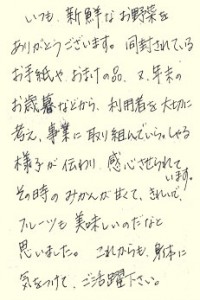 いつも、新鮮なお野菜を
ありがとうございます。同封されている
お手紙や、おまけの品、又、年末の
お歳暮などから、利用者を大切に
考え、事業に取り組んでいらっしゃる
様子が伝わり、感心させられて
います。
その時のみかんが甘くて、きれいで、
フルーツも美味しいのだなと
思いました。これからも、お体に
気をつけて、ご活躍下さい。